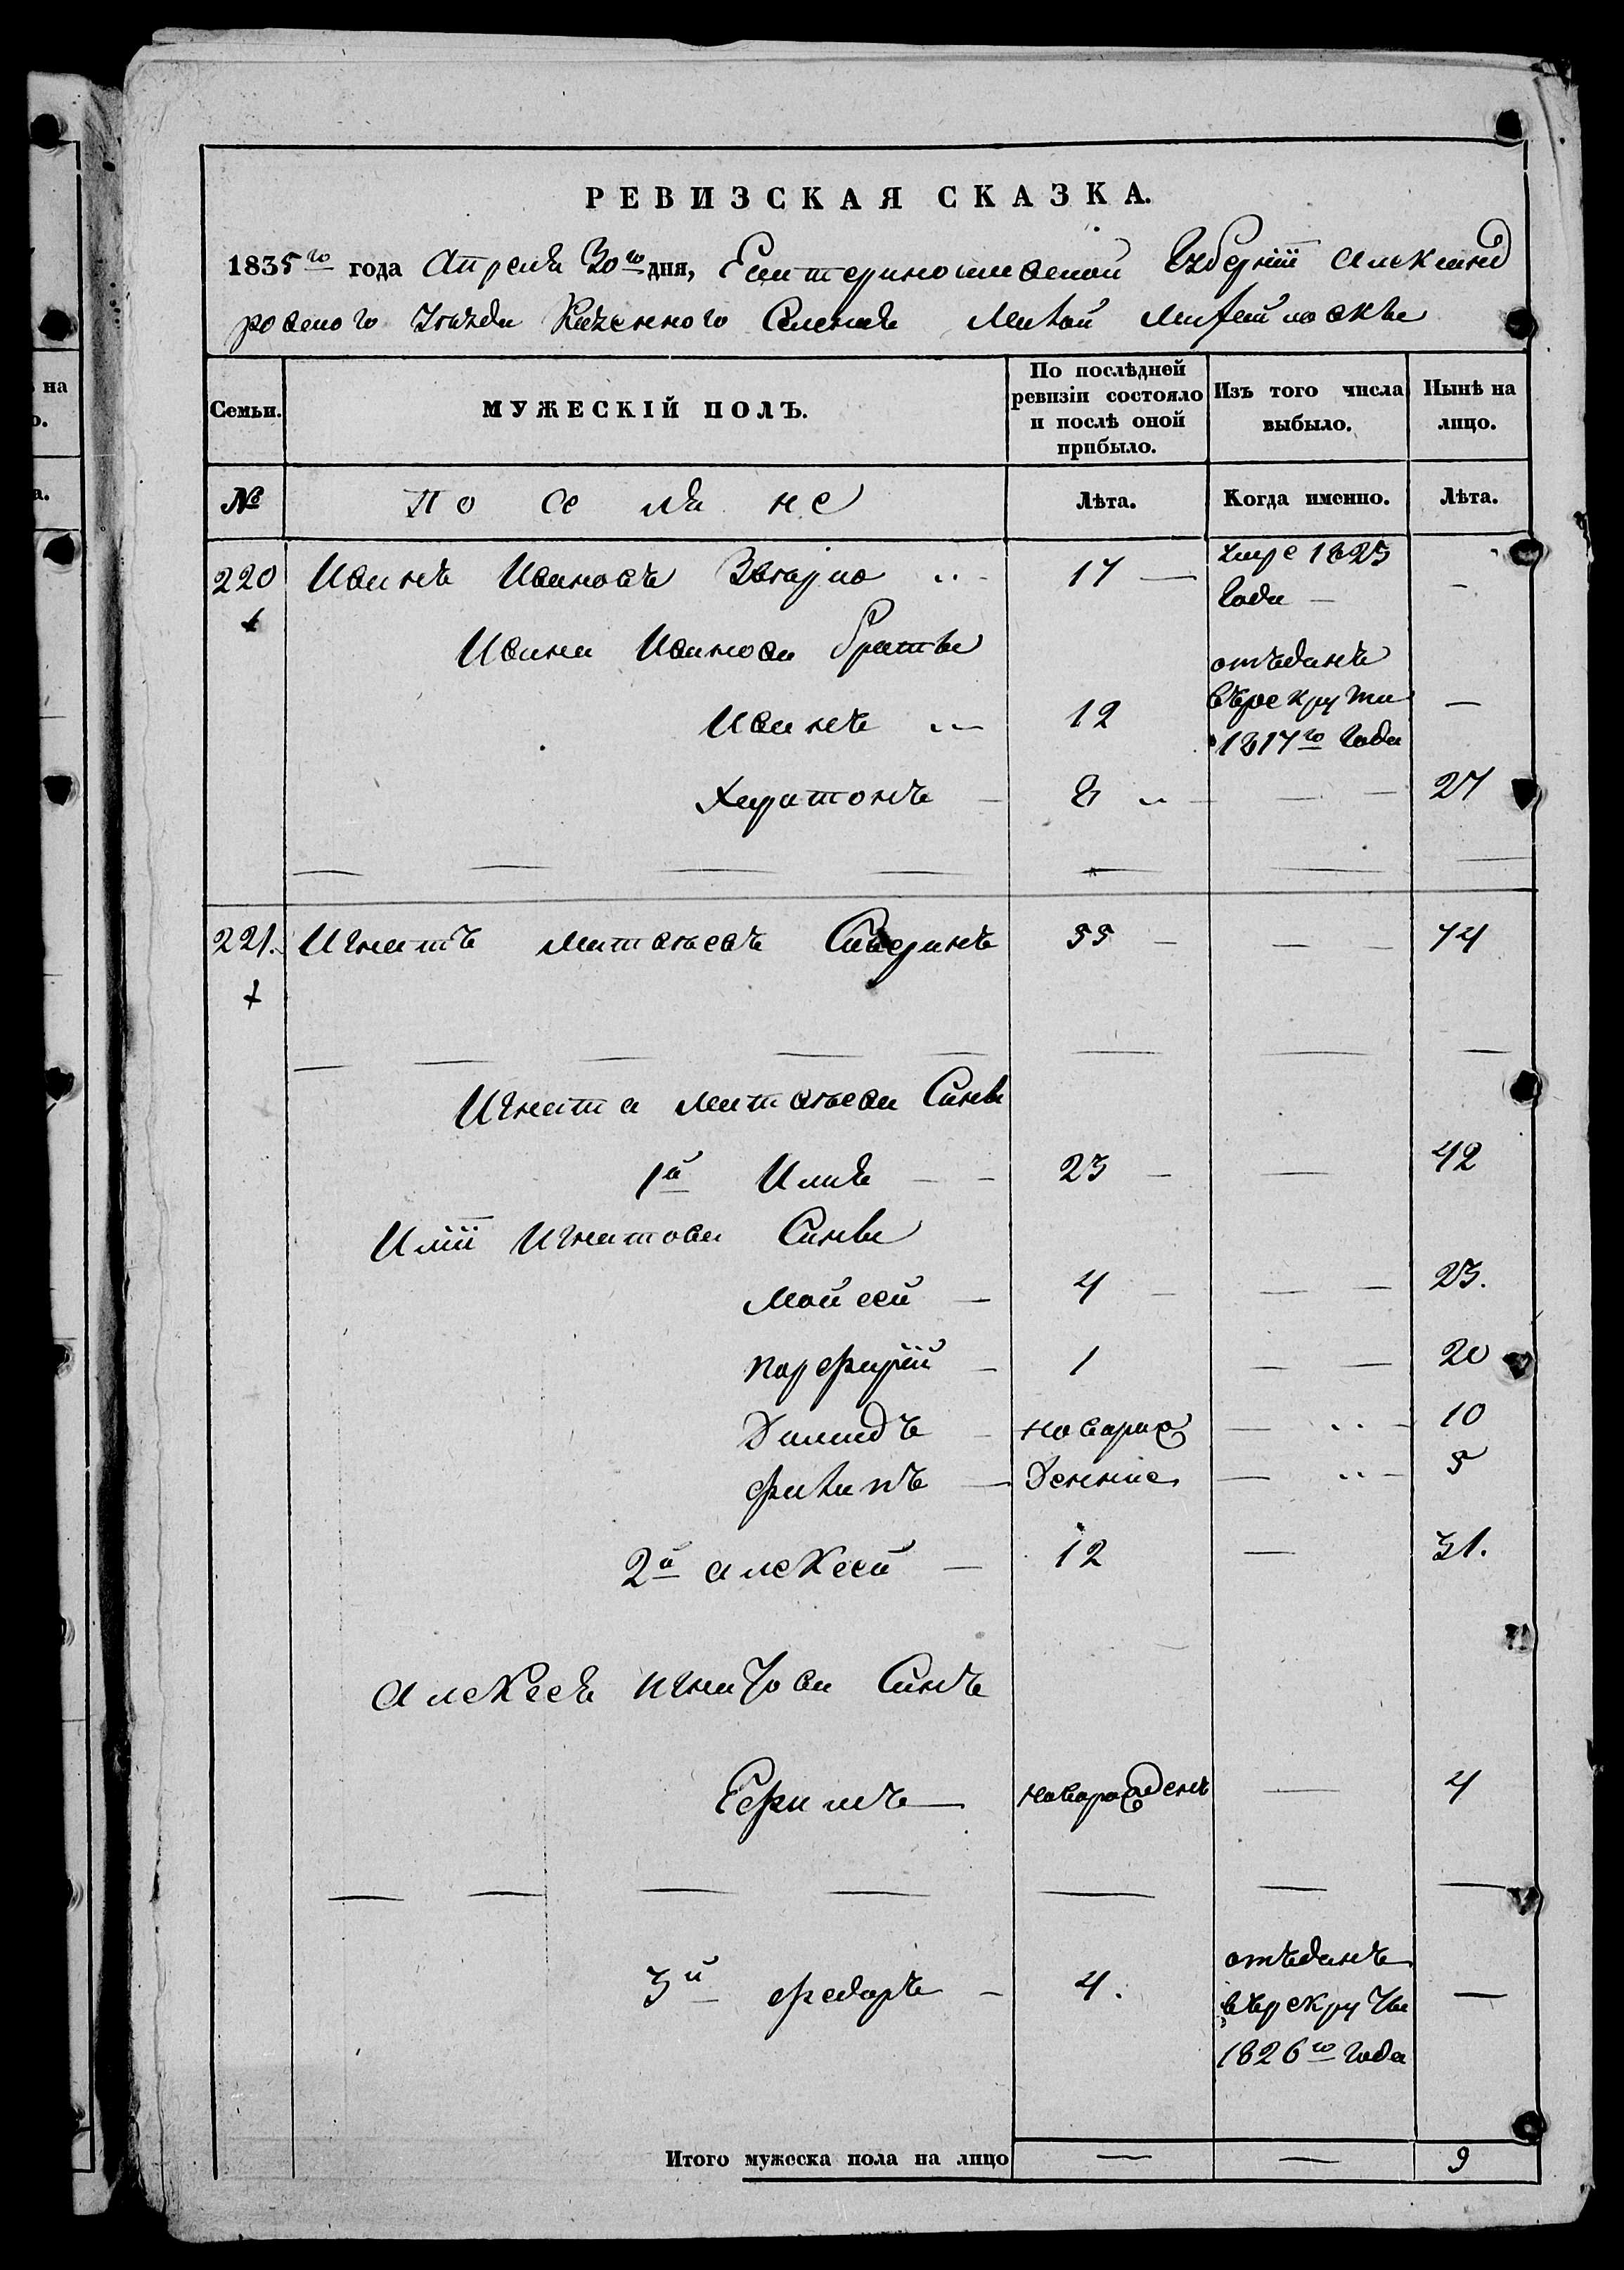 РЕВИЗСКАЯ СКАЗКА.
1835го года Апреля 30го дня, Екатеринославской Губерніи Александ
ровского Уѣзда Казенного Селенія Малой Михайловкы
Семьи. МУЖЕСКІЙ ПОЛЪ. По послѣдней ревизіи состояло и послѣ оной прибыло. Изъ того числа выбыло. Нынѣ на лицо.
№ Поселяне Лѣта. Когда именно. Лѣта.
220 Иванъ Ивановъ 17 — умре 1825 года — —
Ивана Иванова братья
Иванъ 12 отъданъ върекруты 1817го года —
Харитонъ — 8 — — 27
221. Игнатъ Матвѣевъ 55 — — — 74
Игната Матвѣева Сыны
1й Илья — — 23 — — 42
Иліи Игнатова Сыны
Мойсей — 4 — — — 23.
Порфирій — 1 — — 20
Діамидъ — новорож — — 10
Филипъ — денніе — — 5
2й Алексей — 12 — 31.
Алексея Игнатова Сынъ
Ефимъ — новорожденъ — 4
3й Федоръ — 4. отъданъ върекруты 1826го года —
Итого мужеска пола на лицо — — 9
на
о.
а.